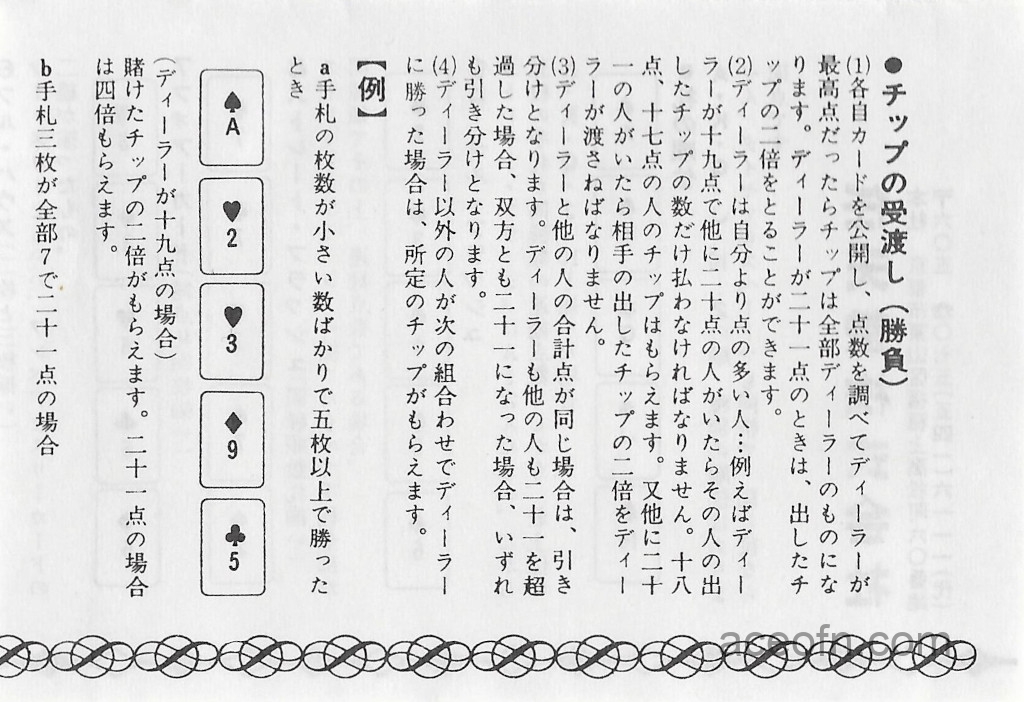 ●チップの受渡し（勝負）
(1)各自カードを公開し、点数を調べてディーラーが
最高点だったらチップは全部ディーラーのものにな
ります。ディーラーが二十一点のときは、出したチ
ップの二倍をとることができます。
(2)ディーラーは自分より点の多い人…例えばディー
ラーが十九点で他に二十点の人がいたらその人の出
したチップの数だけ払わなければなりません。十八
点、十七点の人のチップはもらえます。又他に二十
一の人がいたら相手の出したチップの二倍をディー
ラーが渡さねばなりません。
(3)ディーラーと他の人の合計点が同じ場合は、引き
分けとなります。ディーラーも他の人も二十一を超
過した場合、双方とも二十一になった場合、いずれ
も引き分けとなります。
(4)ディーラー以外の人が次の組合わせでディーラー
に勝った場合は、所定のチップがもらえます。
【例】
a手札の枚数が小さい数ばかりで五枚以上で勝った
とき
♠A
♥2
♥3
♦9
♣5
（ディーラーが十九点の場合）
賭けたチップの二倍がもらえます。二十一点の場合
は四倍もらえます。
b手札三枚が全部7で二十一点の場合
aceofn.com